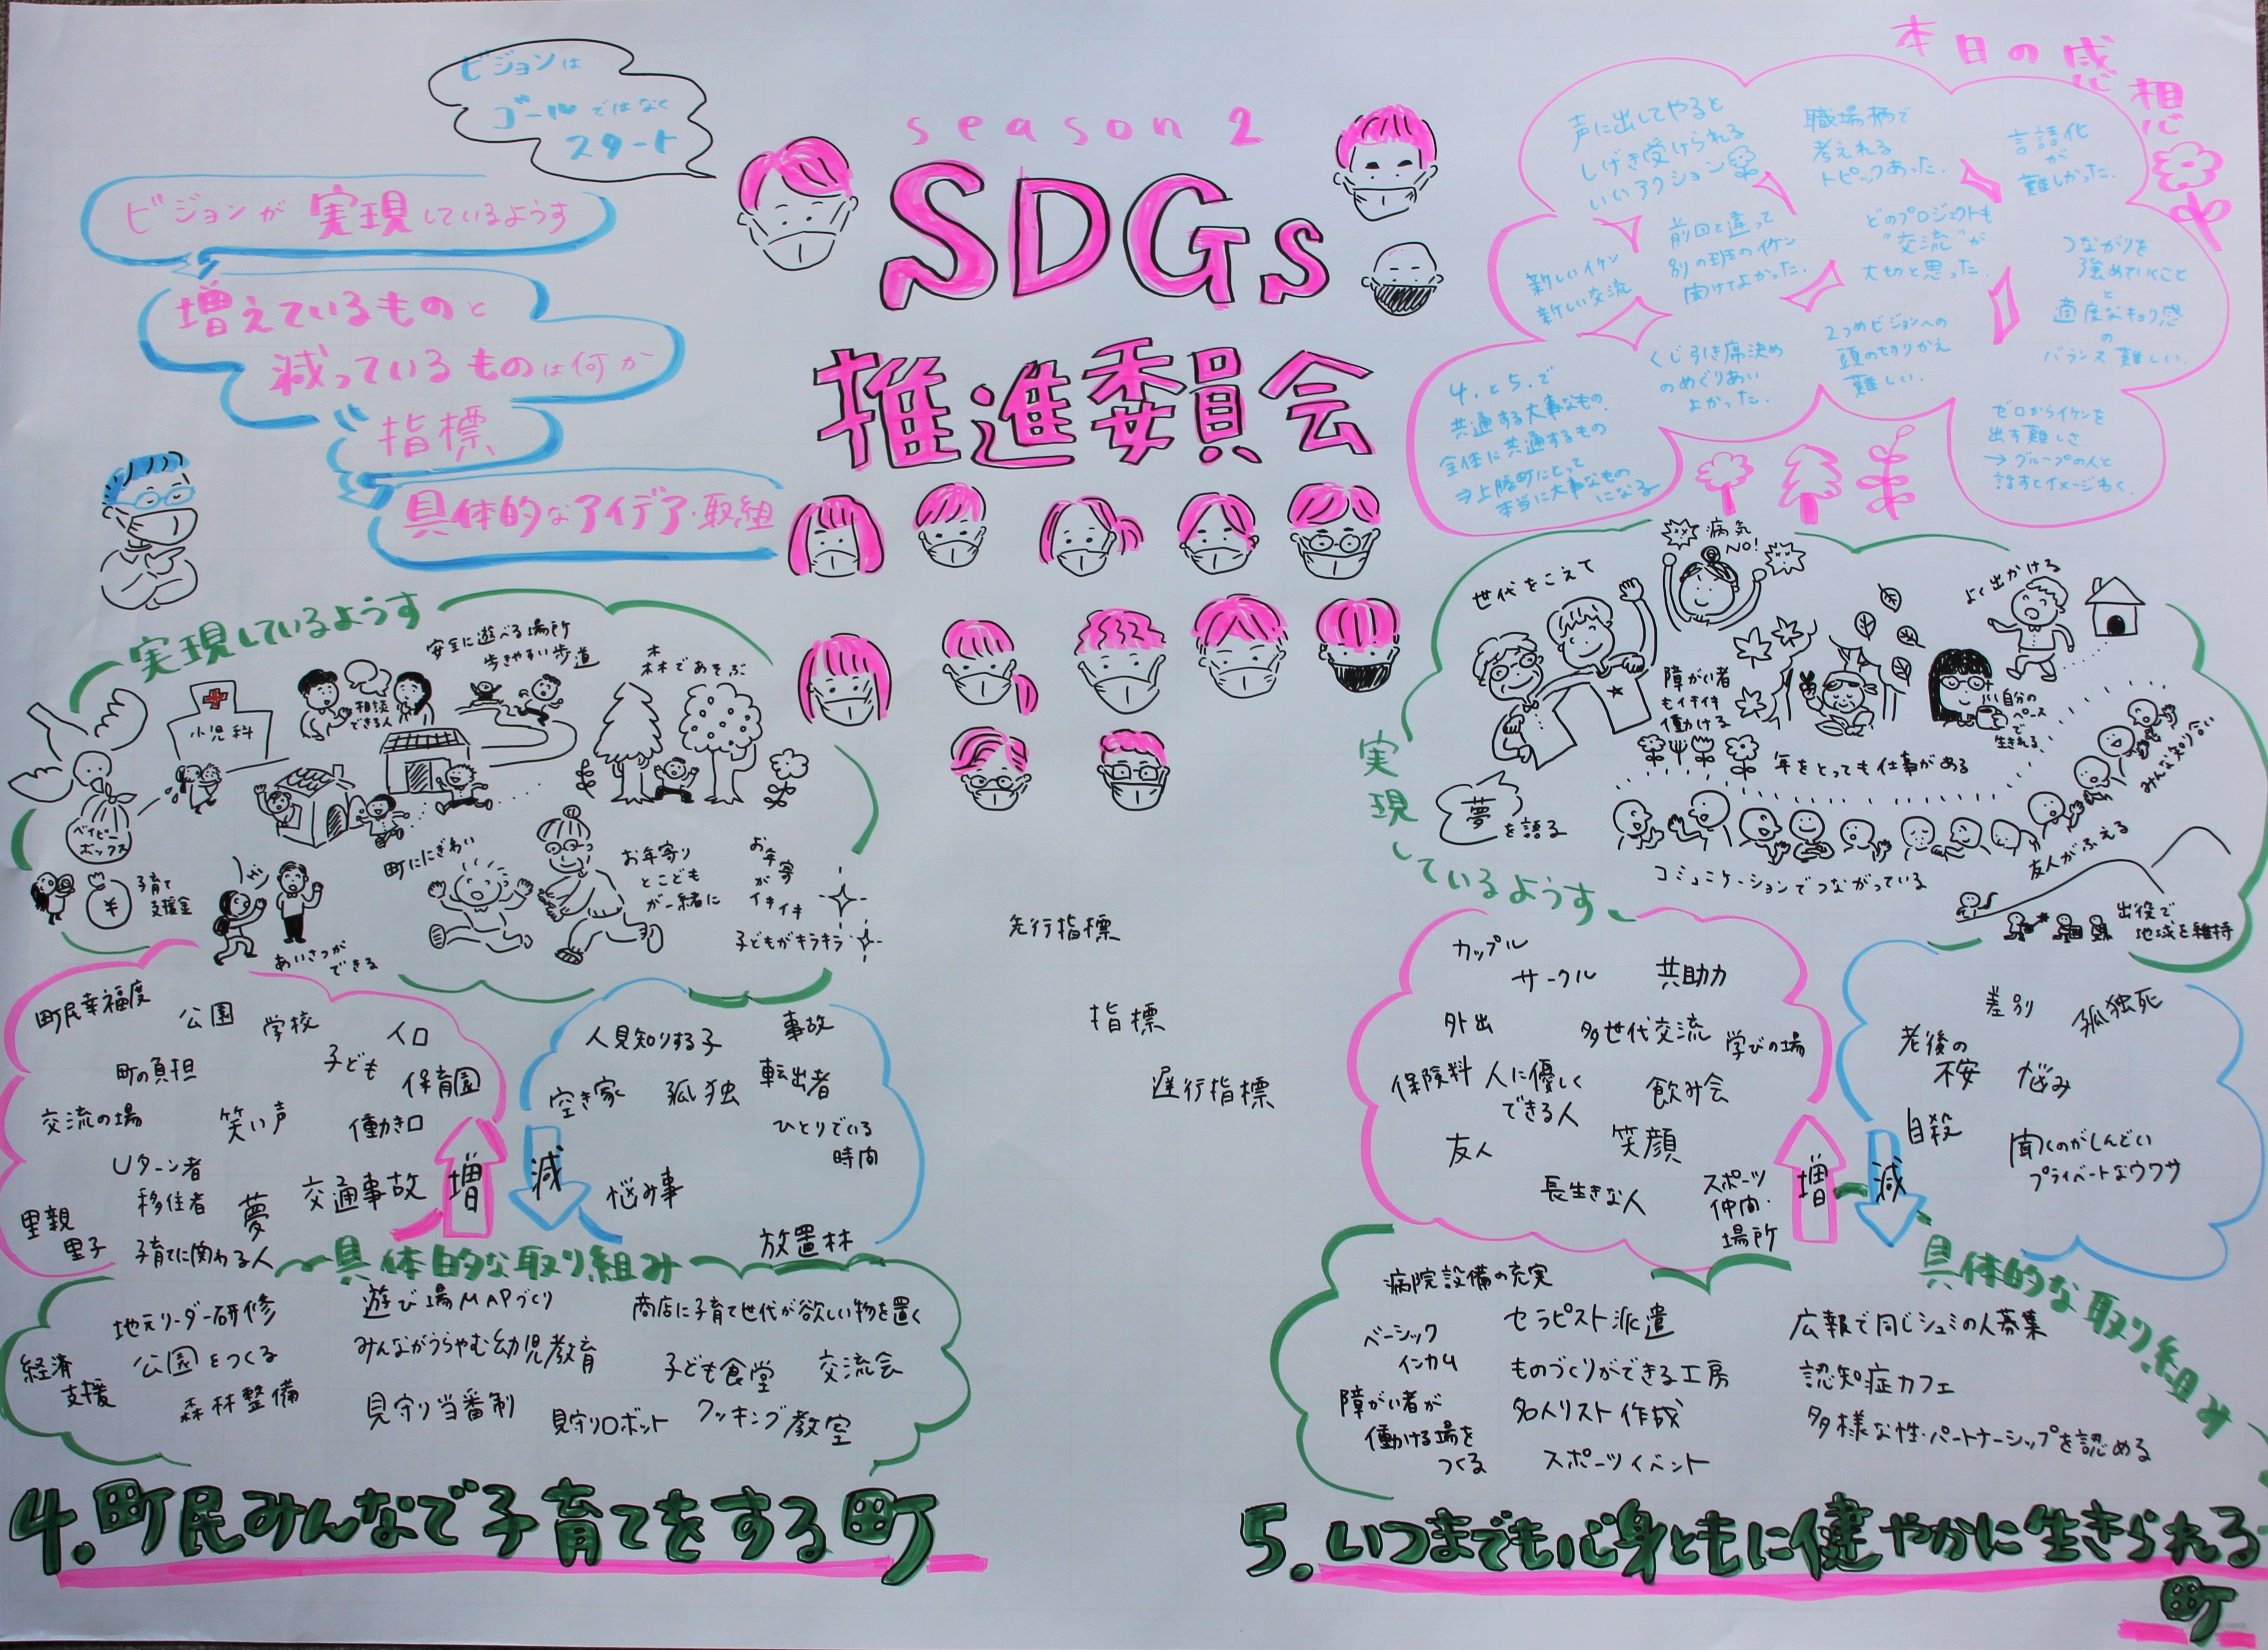 ビジョンは
ゴールではなく
スタート
season 2
SDGs
推進委員会
ビジョンが実現しているようす
増えているものと
減っているものは何か
指標
具体的なアイデア・取組
本日の感想
声に出してやると
しげき受けられる
いいアクション
職場柄で
考えれる
トピックあった.
言語化
が
難しかった.
新しいイケン
新しい交流
前回と違って
別の班のイケン
聞けてよかった.
どのプロジェクトも
"交流"が
大切と思った.
つながりを
強めていくこと
と
適度なキョリ感
の
バランス難しい.
4.と5.で
共通する大事なもの.
全体に共通するもの
→上勝町にとって
本当に大事なもの
になる
くじ引き席決め
のめぐりあい
よかった.
2つめビジョンへの
頭の切りかえ
難しい.
ゼロからイケンを
出す難しさ
→グループの人と
話すとイメージわく.
実現しているようす
小児科
相談
できる人
安全に遊べる場所
歩きやすい歩道
森であそぶ
ベイビー
ボックス
子育て
支援金
あいさつが
できる
町ににぎわい
お年寄り
とこども
が一緒に
お年寄
が
イキイキ
子どもがキラキラ
町民幸福度
公園
学校
人口
町の負担
子ども
保育園
交流の場
笑い声
働き口
Uターン者
移住者
夢
交通事故
里親
里子
子育てに関わる人
増
減
人見知りする子
事故
空き家
孤独
転出者
ひとりでいる
時間
悩み事
放置林
具体的な取り組み
地元リーダー研修
遊び場MAPづくり
商店に子育て世代が欲しい物を置く
経済
支援
公園をつくる
みんながうらやむ幼児教育
子ども食堂
交流会
森林整備
見守り当番制
見守りロボット
クッキング教室
4.町民みんなで子育てをする町
先行指標
指標
遅行指標
実現しているようす
世代をこえて
病気
NO!
よく出かける
障がい者
もイキイキ
働ける
自分の
ペース
で
生きれる
年をとっても仕事がある
みんな知り合い
夢を語る
コミュニケーションでつながっている
友人がふえる
出役で
地域を維持
カップル
サークル
共助力
外出
多世代交流
学びの場
保険料
人に優しく
できる人
飲み会
友人
笑顔
長生きな人
スポーツ
仲間・
場所
増
減
差別
孤独死
老後の
不安
悩み
自殺
聞くのがしんどい
プライベートなウワサ
具体的な取り組み
病院設備の充実
ベーシック
インカム
セラピスト派遣
広報で同じシュミの人募集
ものづくりができる工房
認知症カフェ
障がい者が
働ける場を
つくる
名人リスト作成
多様な性・パートナーシップを認める
スポーツイベント
5.いつまでも心身ともに健やかに生きられる
町